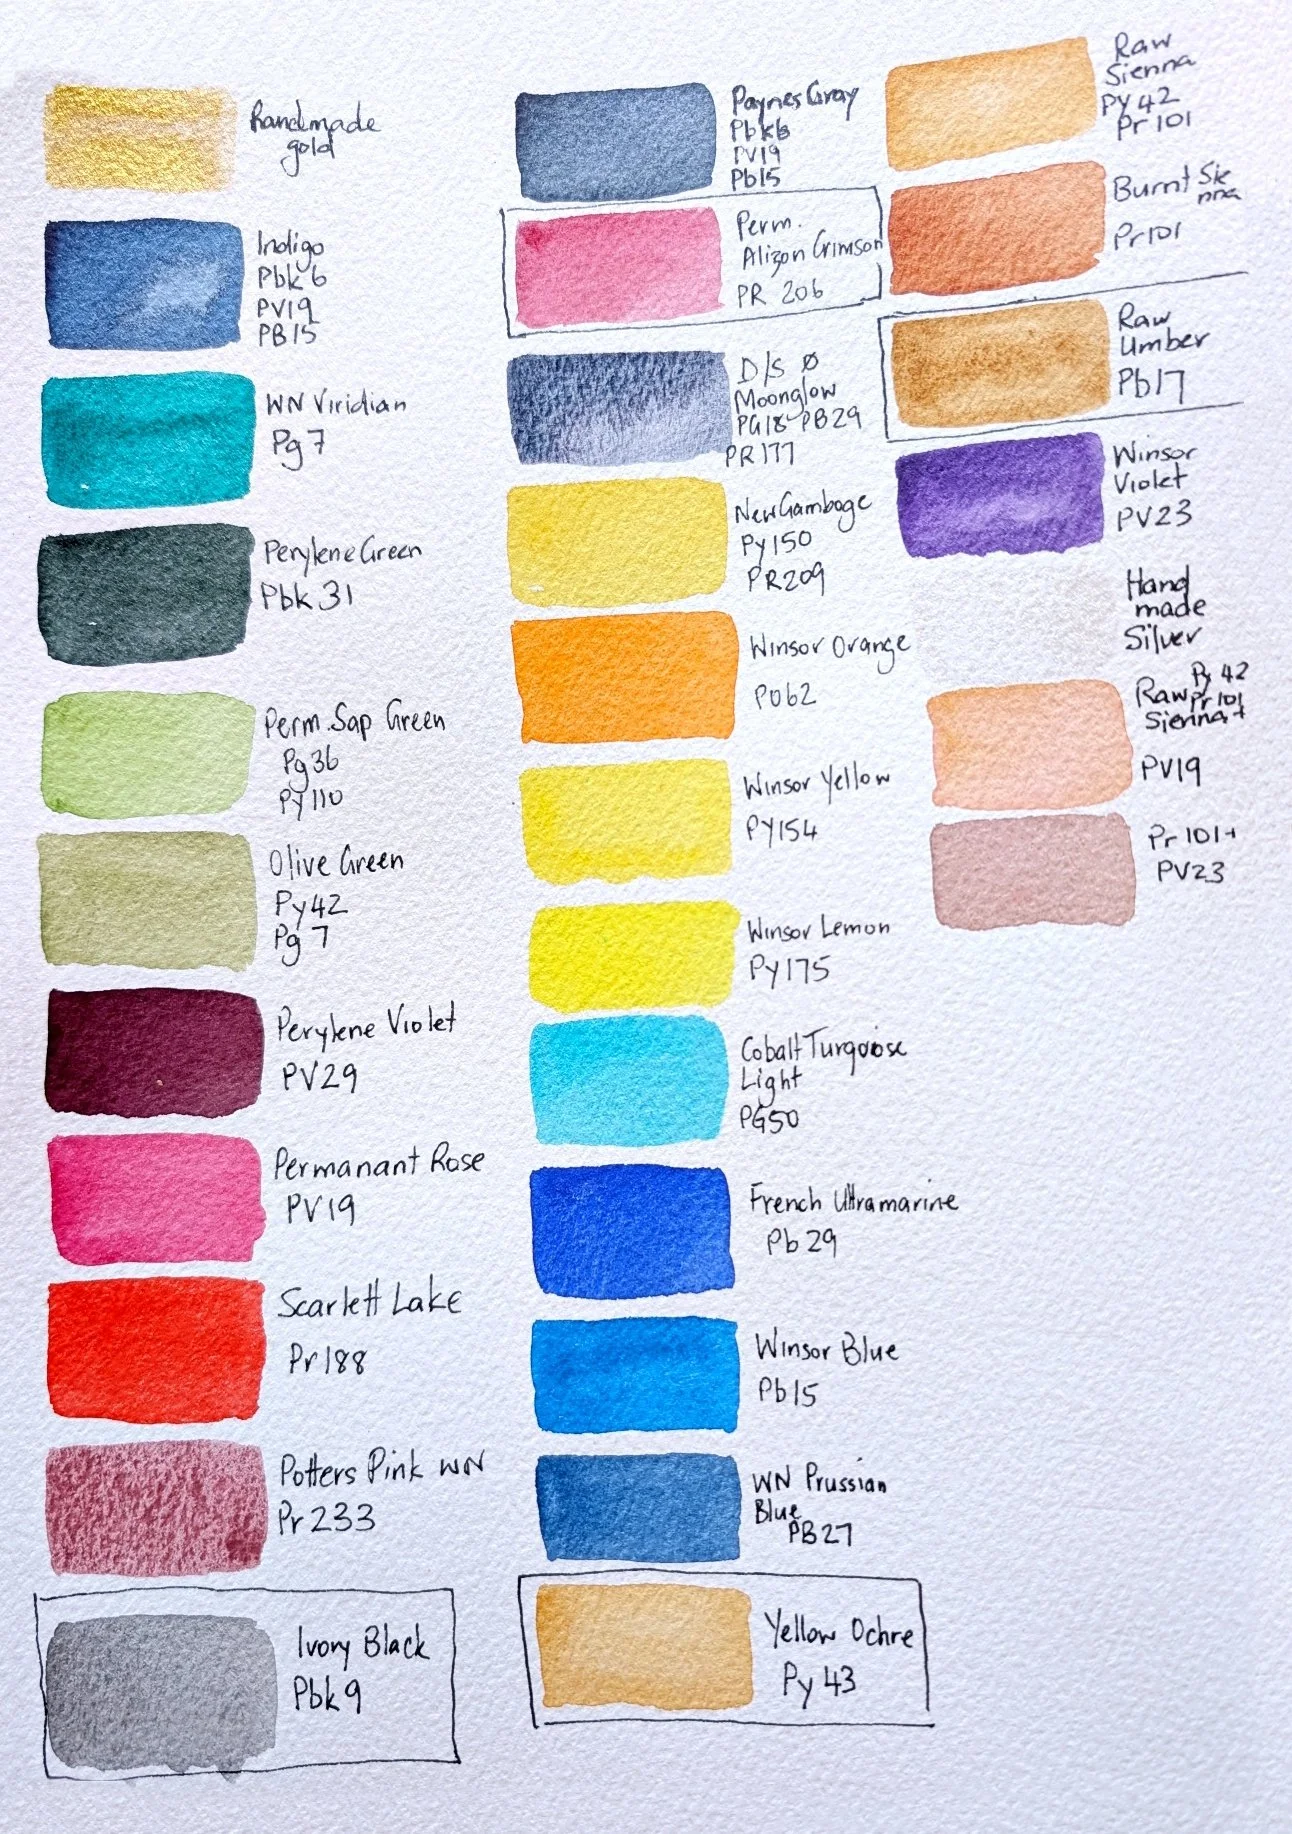 Handmade
gold
Indigo
Pbk 6
PV19
PB15
WN Viridian
Pg 7
Perylene Green
Pbk 31
Perm. Sap Green
Pg36
Py 110
Olive Green
Py 42
Pg 7
Perylene Violet
PV29
Permanant Rose
PV19
Scarlett Lake
Pr 188
Potters Pink WN
Pr 233
Ivory Black
Pbk 9
Paynes Gray
Pbk6
PV19
Pb15
Perm.
Alizon Crimson
PR 206
D/S Ø
Moonglow
PG18 PB29
PR177
New Gamboge
Py 150
PR209
Winsor Orange
PO62
Winsor Yellow
PY154
Winsor Lemon
Py 175
Cobalt Turqoise
Light
PG50
French Ultramarine
Pb 29
Winsor Blue
Pb 15
WN Prussian
Blue
PB27
Yellow Ochre
Py 43
Raw
Sienna
Py 42
Pr 101
Burnt Sie
nna
Pr 101
Raw
Umber
Pb17
Winsor
Violet
PV23
Hand
made
Silver
Py 42
Raw Pr 101
Sienna +
PV19
Pr 101 +
PV23